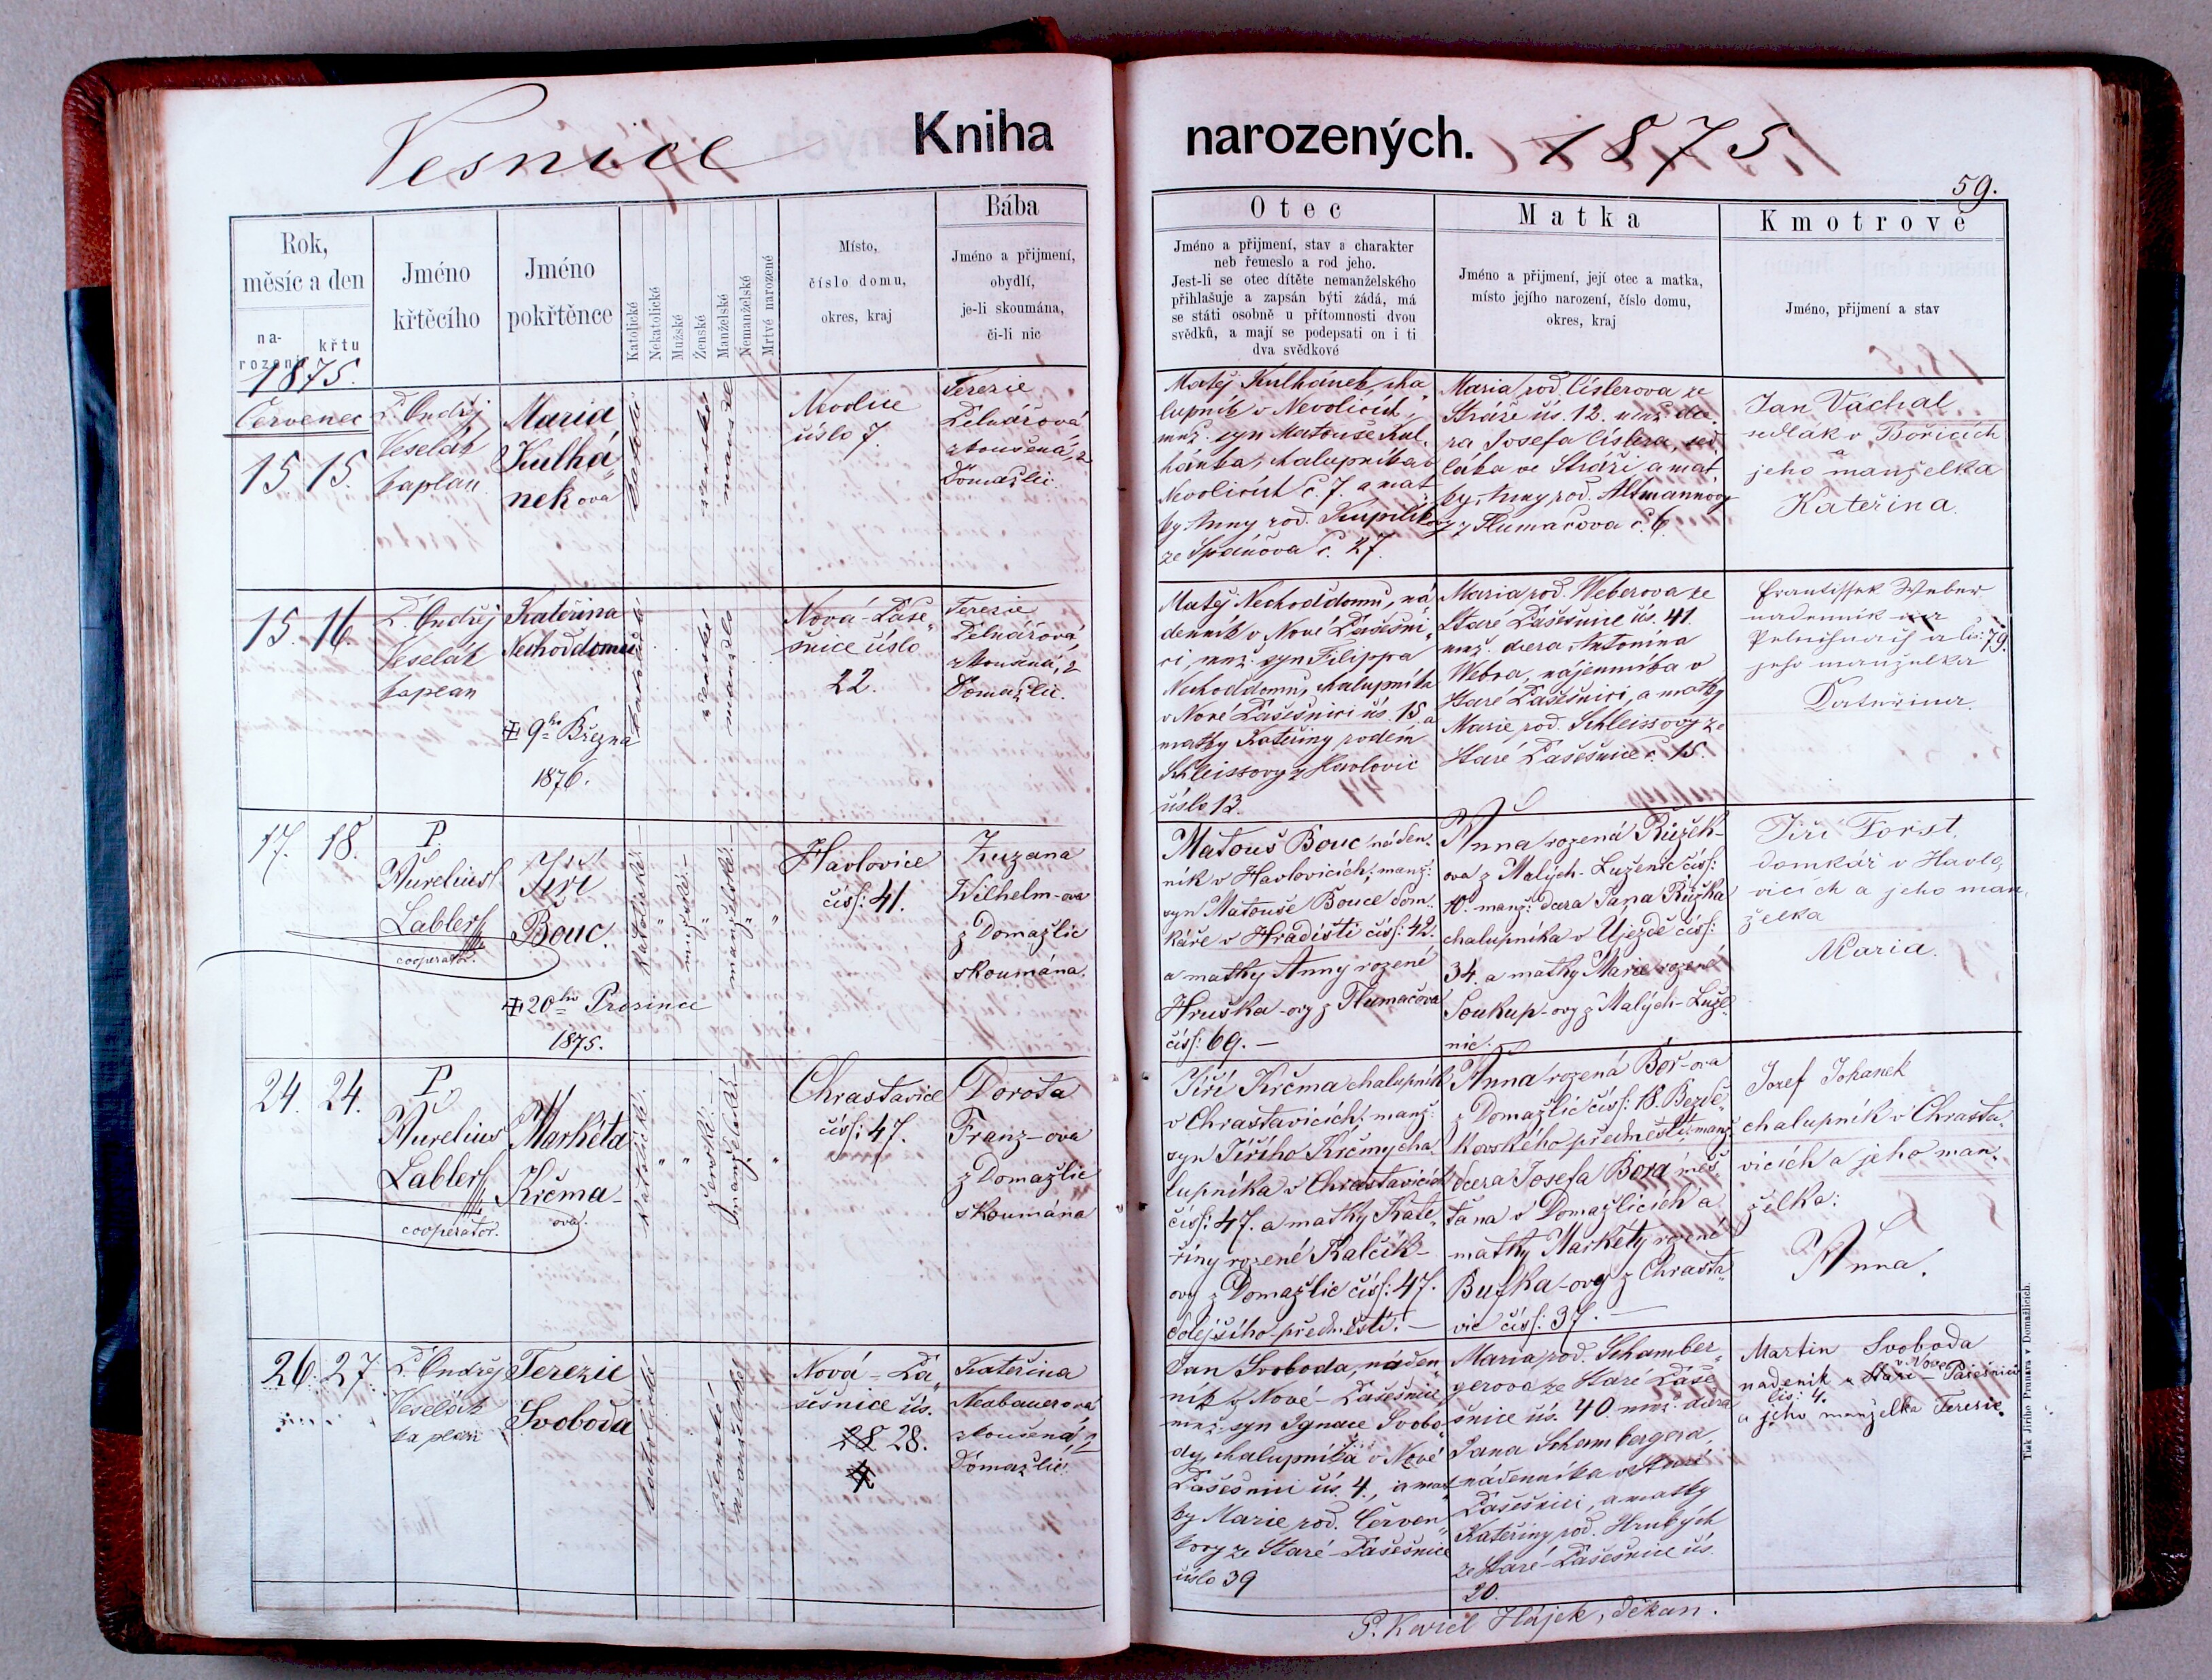 Vesnice
Kniha
narozených.
1875
59.
Rok,
měsíc a den
na-
rození
křtu
Jméno
křtěcího
Jméno
pokřtěnce
Katolické
Nekatolické
Mužské
Ženské
Manželské
Nemanželské
Mrtvě narozené
Místo,
číslo domu,
okres, kraj
Bába
Jméno a přijmení,
obydlí,
je-li skoumána,
či-li nic
Otec
Jméno a přijmení, stav a charakter
neb řemeslo a rod jeho.
Jest-li se otec dítěte nemanželského
přihlašuje a zapsán býti žádá, má
se státi osobně u přítomnosti dvou
svědků, a mají se podepsati on i ti
dva svědkové
Matka
Jméno a přijmení, její otec a matka,
místo jejího narození, číslo domu,
okres, kraj
Kmotrové
Jméno, přijmení a stav
1875.
Červenec
15 15.
P. Ondřej
Veselák
kaplan
Maria
Kulhá
nekova
Nevolice
číslo 7.
Terezie
zkoušená, z
Domažlic
Matěj Kulhánek, cha
lupník v Nevolicích,
mnž. syn Matouše Kul
hánka, chalupníka v
Nevolicích č. 7. a mat
ky Anny rod. Kupilíko
ze Spáňova č. 27.
Maria rod. Císlerova ze
Stráže čís. 12. mnž. dce
ra Josefa Císlera, sed
láka ve Stráži a mat
ky Anny rod. Altmannovy
z Tlumačova č. 6.
Jan Váchal
sedlák v Bořicích
a
jeho manželka
Kateřina.
15. 16.
P. Ondřej
Veselák
kaplan
Kateřina
Nechoddomů
9ho Března
1876.
Nová-Paše„
šnice číslo
22.
Terezie
zkoušená, z
Domažlic.
Matěj Nechoddomů, ná
denník v Nové Pašešni„
ci, mnž. syn Filippa
Nechoddomů, chalupníka
v Nové Pašešnici čís. 15. a
matky Kateřiny rodem
Schleissovy z Havlovic
číslo 13.
Maria rod. Weberova ze
Staré Pašešnice čís. 41.
mnž. dcera Antonína
Webra, nájemníka v
Staré Pašešnici, a matky
Marie rod. Schleissovy ze
Staré Pašešnice č. 15.
Frantisſek Weber
nadennik
a čis: 79.
jeho manželka
Kateřina.
17. 18.
P.
Aurelius
Labler
cooperator.
Jiří
Bouc.
20ho Prosince
1875.
Katolické.
mužské.
manželské.
Havlovice
čísſ: 41.
Zuzana
Wilhelm-ova
z Domažlic
skoumána.
Matouš Bouc náden„
ník v Havlovicích, manž:
syn Matouše Bouce dom„
káře v Hradišti čísſ: 42.
a matky Anny rozené
Hruška-ovy z Tlumačova
čísſ: 69. –
Anna rozená Růžek-
ova z Malých-Luženic čísſ:
10. manž: dcera Jana Růžka
chalupníka v Újezdě čísſ:
34. a matky Marie rozené
Soukup-ovy z Malých-Luže„
nic.
Jiří Forst,
domkář v Havlo„
vicích a jeho man„
želka
Maria.
24. 24.
P.
Aurelius
Labler
cooperator.
Markéta
Krčma-
ova.
Katolické.
ženské.
manželské.
Chrastavice
čísſ: 47.
Dorota
Franz-ova
z Domažlic
skoumána
Jiří Krčma chalupník
v Chrastavicích, manž:
syn Jiřího Krčmy cha„
lupníka v Chrastavicích
čísſ: 47. a matky Kate„
řiny rozené Kalčík-
ovy z Domažlic čísſ: 47.
dolejšího předměstí. –
Anna rozená Bor-ova
z Domažlic čísſ: 18. Bezdě„
kovského předměstí, manž:
dcera Josefa Bora měš„
ťana v Domažlicích a
matky Markéty rozené
Buška-ovy z Chrasta„
vic čísſ: 37. –
Jozef Johanek
chalupník v Chrasta„
vicích a jeho man„
želka:
Anna.
26. 27.
P. Ondřej
Veselák
kaplan
Terezie
Svoboda
Nová-Pa„
šešnice čís.
28 28.
Kateřina
Neubauerová
zkoušená, z
Domažlic.
Jan Svoboda, náden„
ník v Nové-Pašešnici
mnž. syn Ignace Svobo„
dy, chalupníka v Nové
Pašešnici čís. 4., a mat
ky Marie rod. Červen„
kovy ze Staré-Pašešnice
číslo 39
Maria rod. Schamber„
gerova ze Staré Paše
šnice čís. 40. mnž. dcera
Jana Schambergera,
nádenníka ve Staré
Pašešnici, a matky
Kateřiny rod. Hrubých
ze Staré-Pašešnice čís.
20.
Martin Svoboda
v Nové
nadenik v Staré-Pašešnici
čís: 4.
a jeho manželka Terezie.
P. Karel Hájek, děkan.
Tisk Jiřího Prunara v Domažlicích.